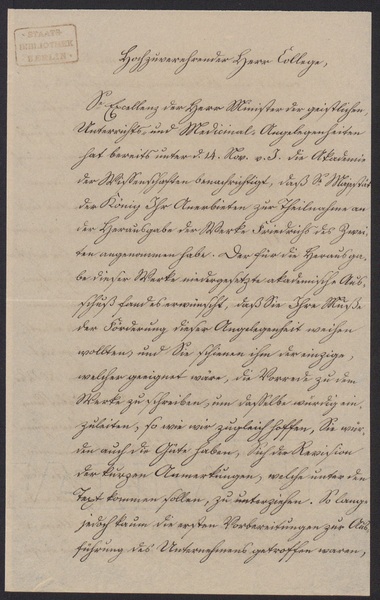 STAATS-
BIBLIOTHEK
BERLIN
Hochzuverehrender Herr College,
Se Excellenz der Herr Minister der geistlichen,
Unterrichts- und Medicinal-Angelegenheiten
hat bereits unter d. 14. Nov. v. J. die Akademie
der Wissenschaften benachrichtigt, daß Se Majestät
der König Ihr Anerbieten zur Theilnahme an
der Herausgabe der Werke Friedrichs des Zwei-
ten angenommen habe. Der für die Herausga-
be dieser Werke niedergesetzte akademische Aus-
schuß fand es erwünscht, daß Sie Ihre Muße
der Förderung dieser Angelegenheit weihen
wollten, und Sie schienen ihm der einzige,
welcher geeignet wäre, die Vorrede zu dem
Werke zu schreiben, um dasselbe würdig ein-
zuleiten, so wie wir zugleich hoffen, Sie wür-
den auch die Güte haben, sich der Revision
der kurzen Anmerkungen, welche unter den
Text kommen sollen, zu unterziehen. So lange
jedoch kaum die ersten Vorbereitungen zur Aus-
führung des Unternehmens getroffen waren,